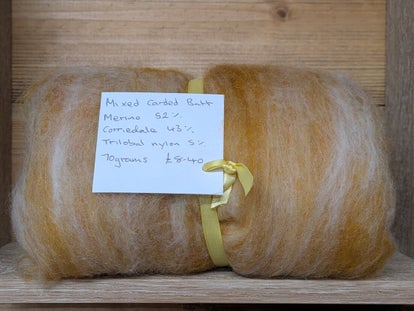 Mixed Carded Batt
Merino 52%
Corriedale 43%
Trilobal nylon 5%
70grams £8.40